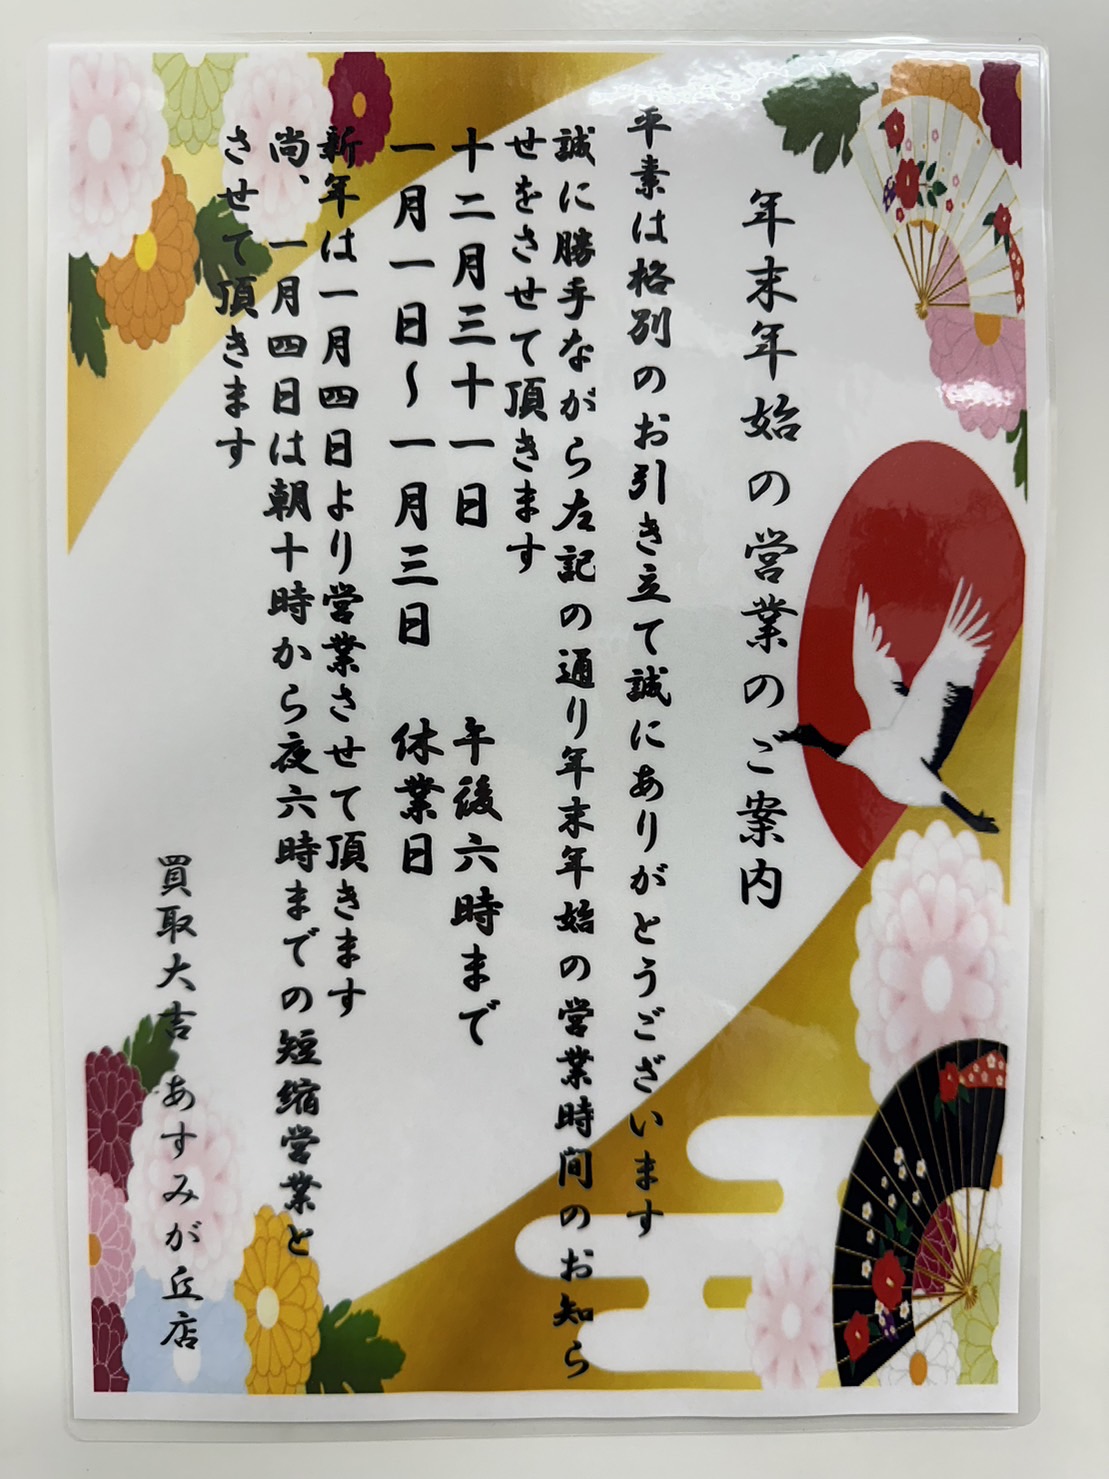 年末年始の営業のご案内
平素は格別のお引き立て誠にありがとうございます
誠に勝手ながら左記の通り年末年始の営業時間のお知ら
せをさせて頂きます
十二月三十一日　午後六時まで
一月一日～一月三日　休業日
新年は一月四日より営業させて頂きます
尚、一月四日は朝十時から夜六時までの短縮営業と
させて頂きます
買取大吉　あすみが丘店